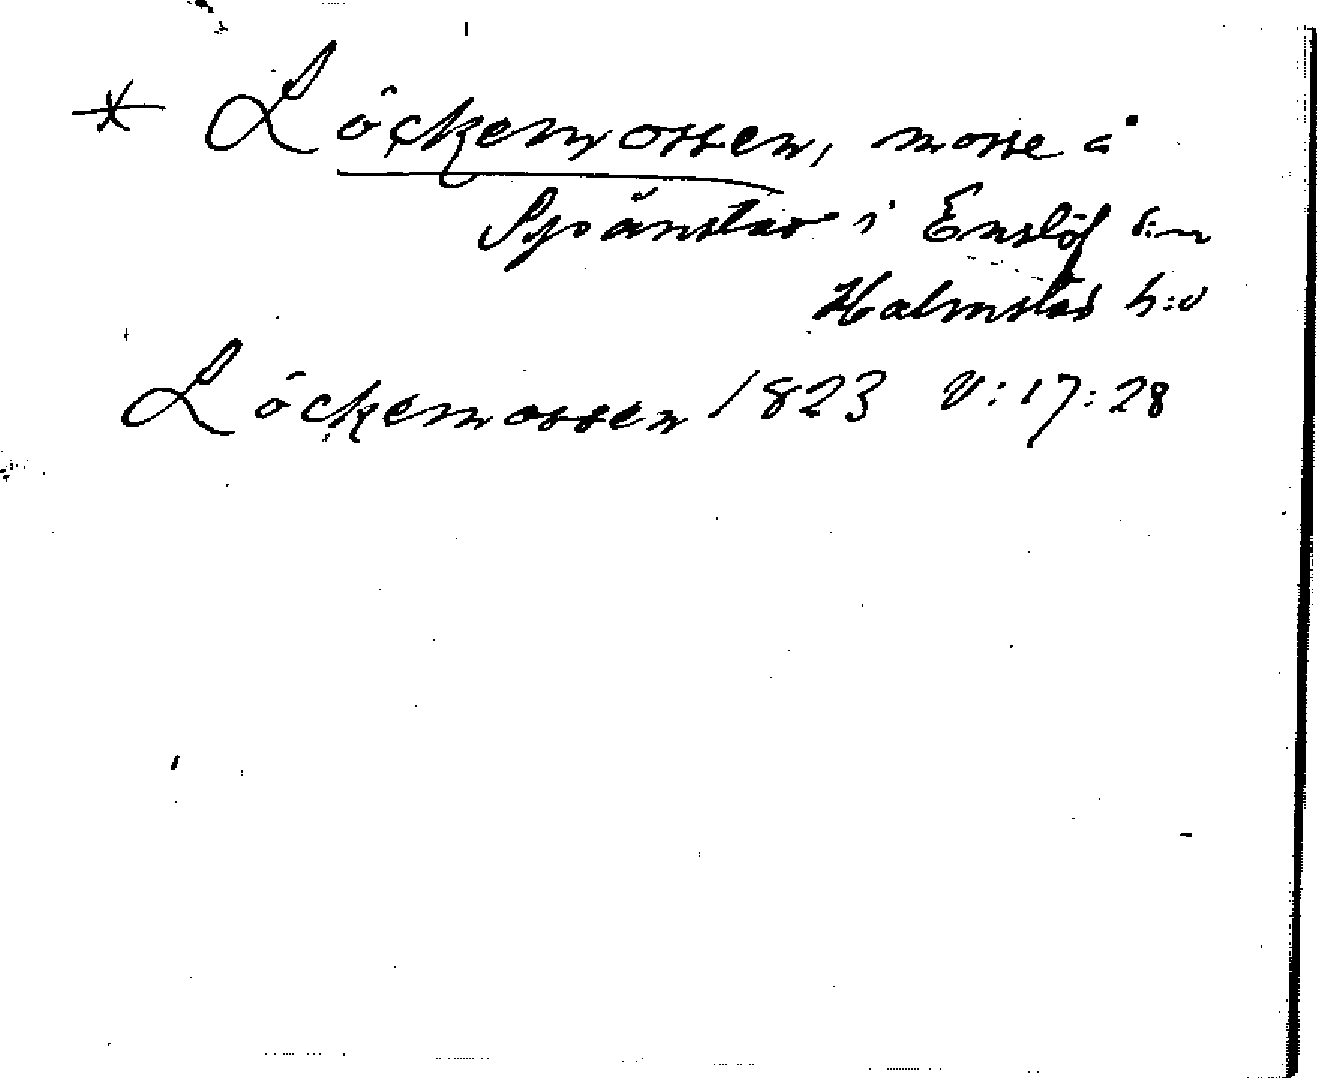 * Löckemossen, mosse å
Spånstad i Enslöf s:n
Halmstad h:d
Löckemossen 1823 V:17:28